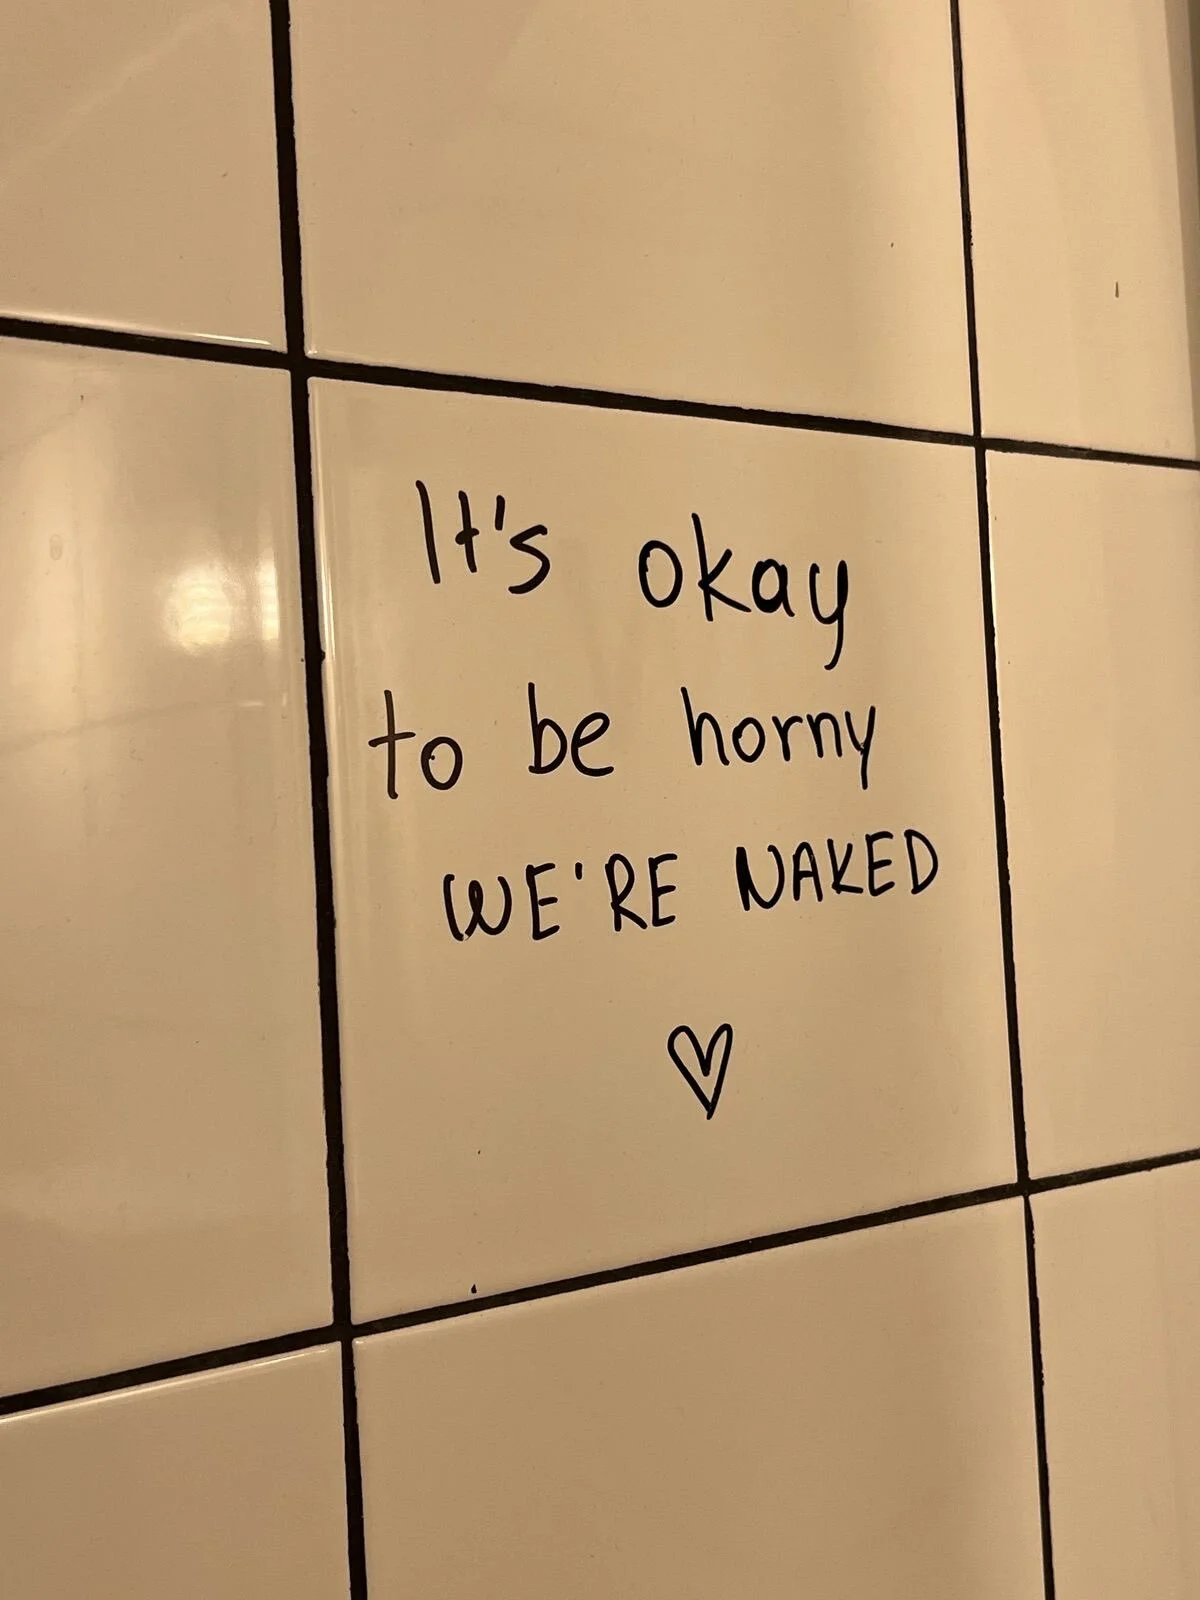 It's okay
to be horny
WE'RE NAKED
♡